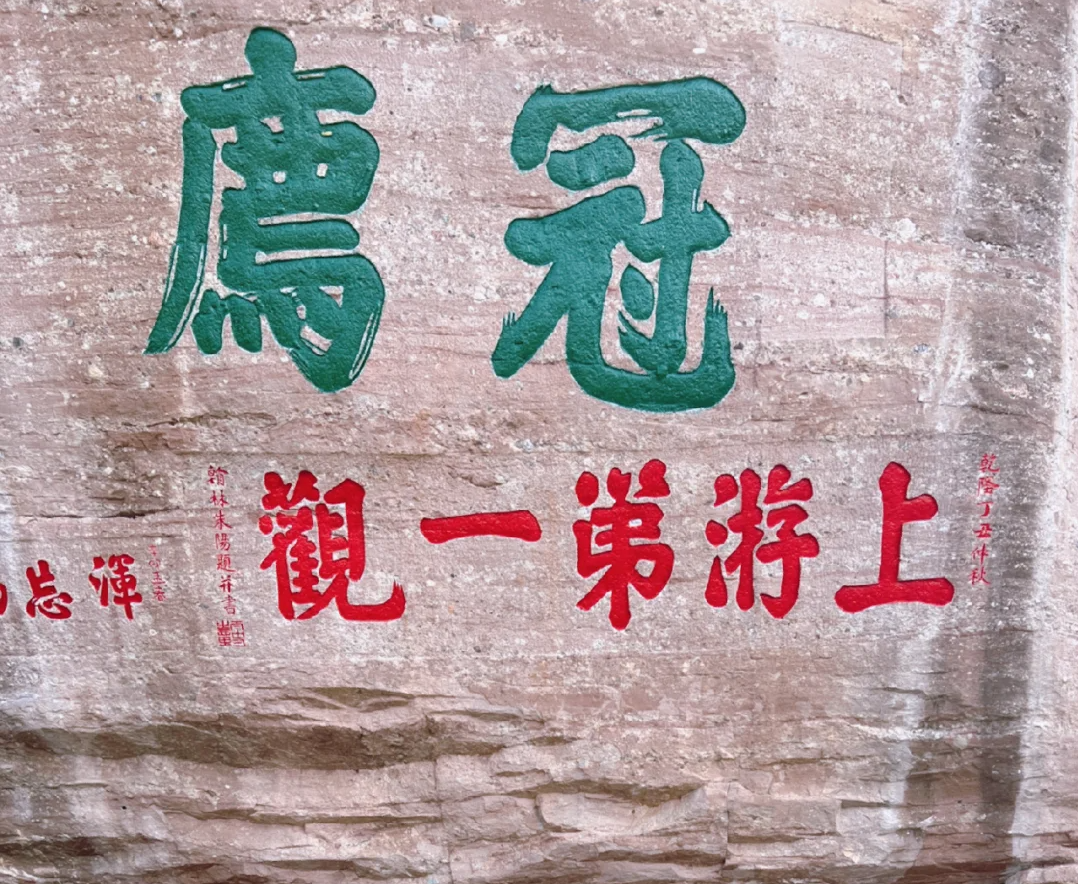 冠廌
乾隆丁丑仲秋
上游第一觀
翰林朱陽題并書
渾忘